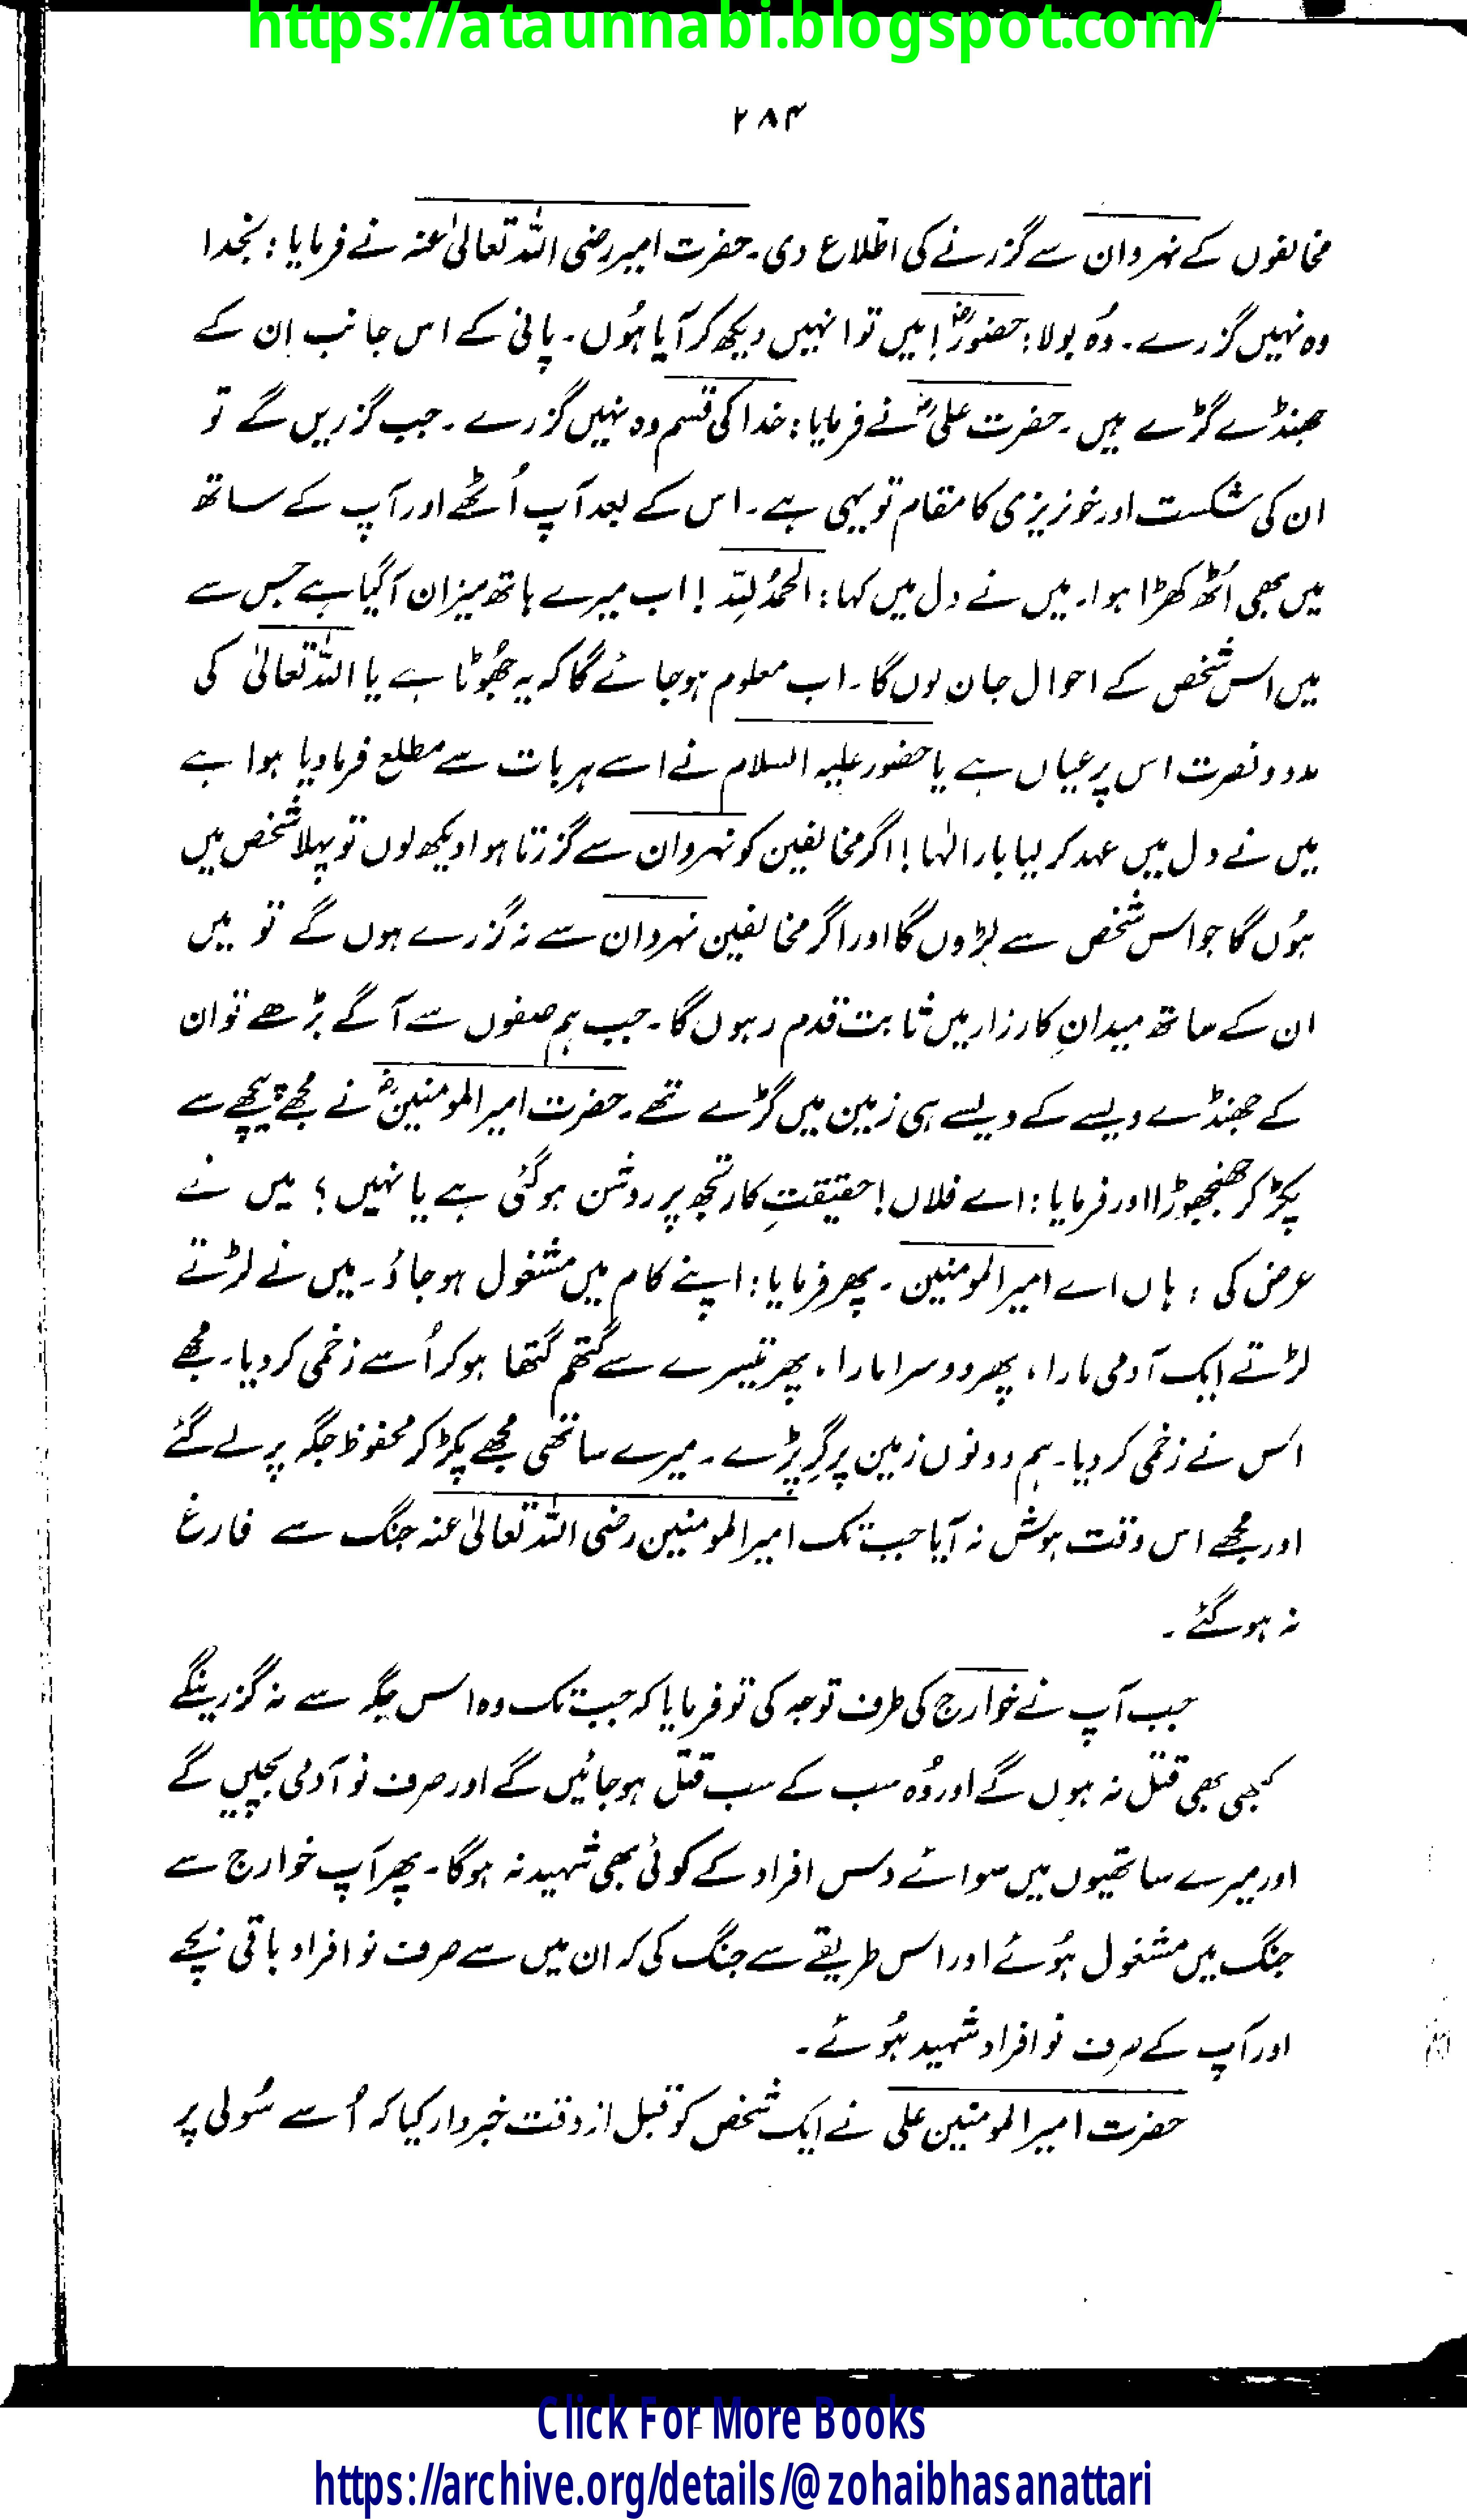 https://ataunnabi.blogspot.com/
۲۸۴
مخالفوں کے نہروان سے گزرنے کی اطلاع دی۔ حضرت امیر رضی اللہ تعالیٰ عنہ نے فرمایا: بخدا
وہ نہیں گزرے۔ وُہ بولا: حضورؐ! میں تو انہیں دیکھ کر آیا ہُوں۔ پانی کے اس جانب ان کے
جھنڈے گڑے ہیں۔ حضرت علیؓ نے فرمایا: خدا کی قسم وہ نہیں گزرے۔ جب گزریں گے تو
ان کی شکست اور خونریزی کا مقام تو یہی ہے۔ اس کے بعد آپ اُٹھے اور آپ کے ساتھ
میں بھی اُٹھ کھڑا ہوا۔ میں نے دل میں کہا: الحمدُ لِلّٰہ! اب میرے ہاتھ میزان آ گیا ہے جس سے
میں اس شخص کے احوال جان لوں گا۔ اب معلوم ہو جائے گا کہ یہ جھُوٹا ہے یا اللہ تعالیٰ کی
مدد و نصرت اس پر عیاں ہے یا حضور علیہ السلام نے اسے ہر بات سے مطلع فرما دیا ہوا ہے
میں نے دل میں عہد کر لیا بار الٰہا! اگر مخالفین کو نہروان سے گزرتا ہوا دیکھ لوں تو پہلا شخص میں
ہُوں گا جو اس شخص سے لڑوں گا اور اگر مخالفین نہروان سے نہ گزرے ہوں گے تو میں
ان کے ساتھ میدانِ کارزار میں ثابت قدم رہوں گا۔ جب ہم صفوں سے آگے بڑھے تو ان
کے جھنڈے ویسے کے ویسے ہی زمین میں گڑے تھے۔ حضرت امیر المومنینؓ نے مجھے پیچھے سے
پکڑ کر جھنجھوڑا اور فرمایا: اے فلاں! حقیقتِ کار تجھ پر روشن ہو گئی ہے یا نہیں؟ میں نے
عرض کی: ہاں اے امیر المومنین۔ پھر فرمایا: اپنے کام میں مشغول ہو جاؤ۔ میں نے لڑتے
لڑتے ایک آدمی مارا، پھر دوسرا مارا، پھر تیسرے سے گتھم گتھا ہو کر اُسے زخمی کر دیا۔ مجھے
اس نے زخمی کر دیا۔ ہم دونوں زمین پر گِر پڑے۔ میرے ساتھی مجھے پکڑ کر محفوظ جگہ پر لے گئے
اور مجھے اس وقت ہوش نہ آیا جب تک امیر المومنین رضی اللہ تعالیٰ عنہ جنگ سے فارغ
نہ ہو گئے۔
جب آپ نے خوارج کی طرف توجہ کی تو فرمایا کہ جب تک وہ اس جگہ سے نہ گزرینگے
کبھی بھی قتل نہ ہوں گے اور وُہ سب کے سب قتل ہو جائیں گے اور صرف نو آدمی بچیں گے
اور میرے ساتھیوں میں سوائے دس افراد کے کوئی بھی شہید نہ ہو گا۔ پھر آپ خوارج سے
جنگ میں مشغول ہُوئے اور اس طریقے سے جنگ کی کہ ان میں سے صرف نو افراد باقی بچے
اور آپ کے صرف نو افراد شہید ہُوئے۔
حضرت امیر المومنین علی نے ایک شخص کو قبل از وقت خبردار کیا کہ اُسے سُولی پر
Click For More Books
https://archive.org/details/@zohaibhasanattari